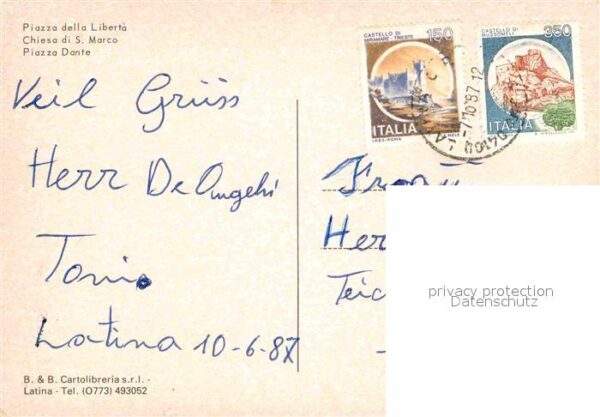 Piazza della Libertà
Chiesa di S. Marco
Piazza Dante
Veil Grüss
Herr De Angehi
Tonio
Latina 10-6-87
B. & B. Cartolibreria s.r.l. -
Latina - Tel. (0773) 493052
CASTELLO DI
MIRAMARE - TRIESTE
150
ITALIA
I.P.Z.S. - ROMA
CASTELLO DI
350
ITALIA
10 87 12
Her
Teic
privacy protection
Datenschutz